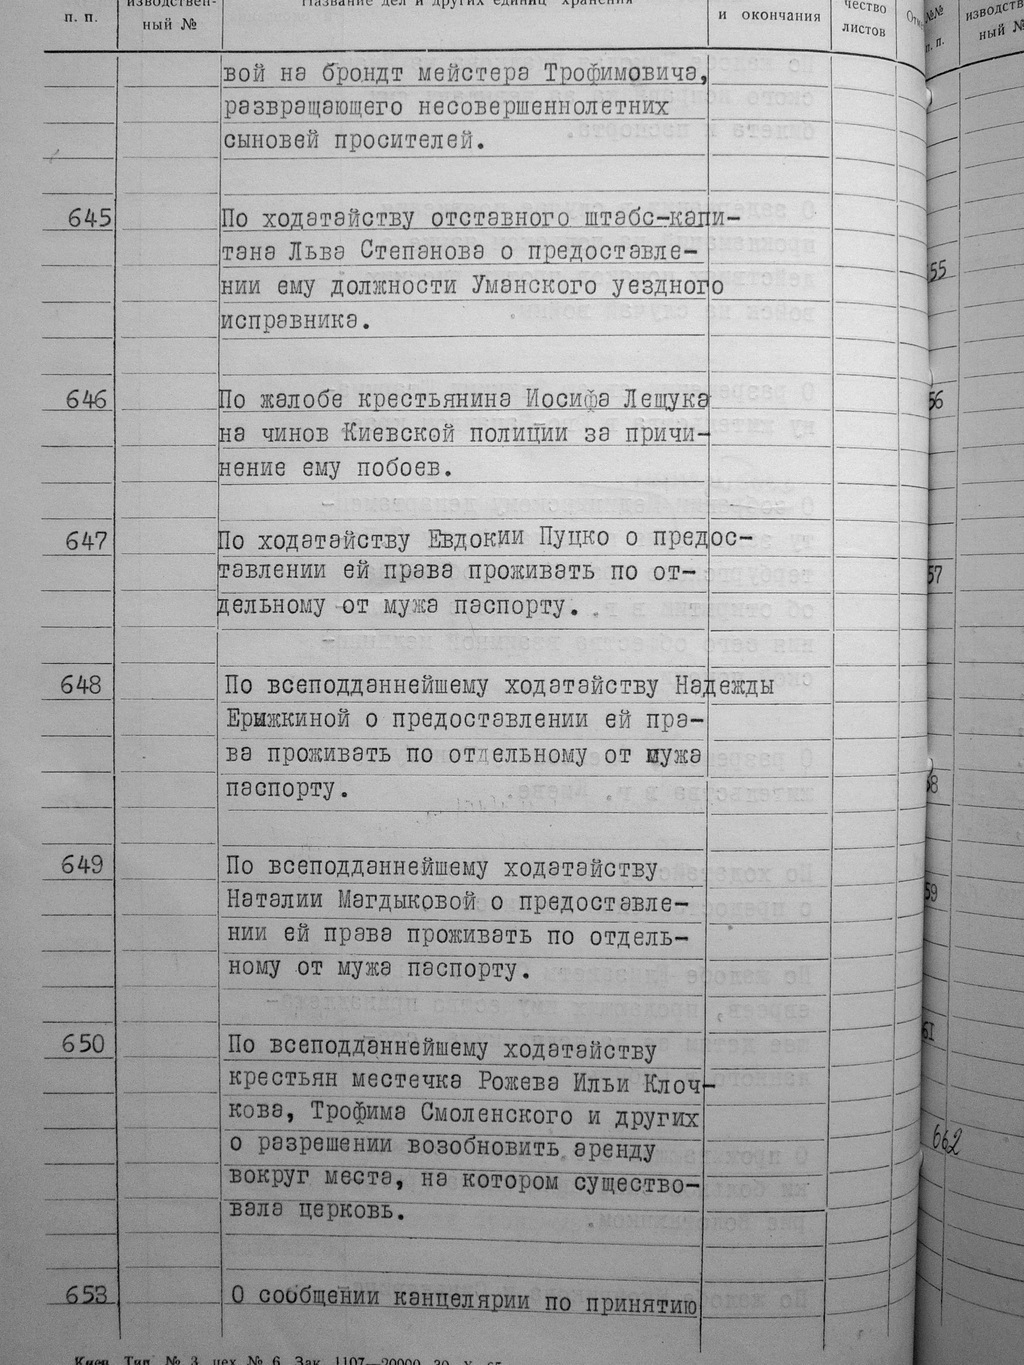 п. п.
ный №
Название дел и других единиц хранения
и окончания
чество
листов
вой на брондт мейстера Трофимовича,
развращающего несовершеннолетних
сыновей просителей.
645
По ходатайству отставного штабс-капи-
тана Льва Степанова о предоставле-
нии ему должности Уманского уездного
исправника.
646
По жалобе крестьянина Иосифа Лещука
на чинов Киевской полиции за причи-
нение ему побоев.
647
По ходатайству Евдокии Пуцко о предос-
тавлении ей права проживать по от-
дельному от мужа паспорту.
648
По всеподданнейшему ходатайству Надежды
Ерыжкиной о предоставлении ей пра-
ва проживать по отдельному от мужа
паспорту.
649
По всеподданнейшему ходатайству
Наталии Магдыковой о предоставле-
нии ей права проживать по отдель-
ному от мужа паспорту.
650
По всеподданнейшему ходатайству
крестьян местечка Рожева Ильи Клоч-
кова, Трофима Смоленского и других
о разрешении возобновить аренду
вокруг места, на котором существо-
вала церковь.
653
О сообщении канцелярии по принятию
Киев. Тип. № 3, цех № 6. Зак. 1107—20000
№№
п. п.
ный №
55
56
57
58
59
61
662